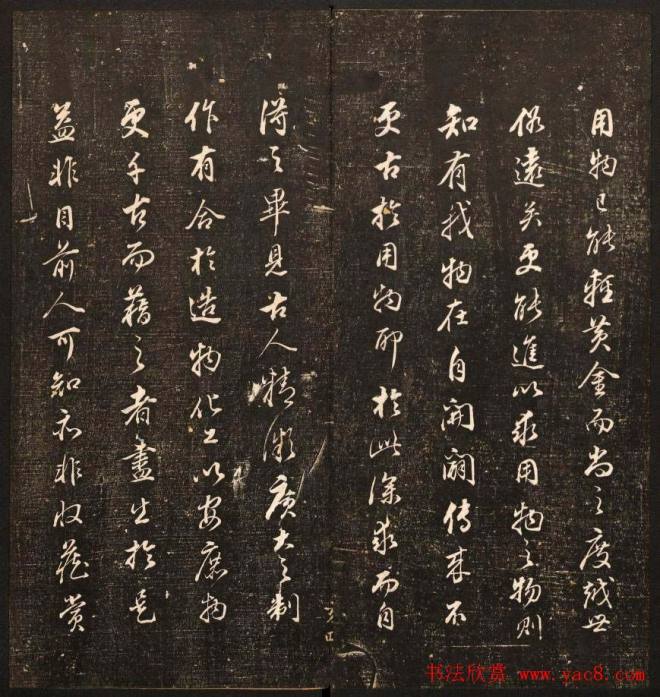 用物已能輕黃金而尚之度越世
俗遠矣更能進以求用物之物則
知有我物在自開闢传来不
更古於用物耶於此深求而自
得之畢見古人精微廣大之制
作有合於造物化工以安庶物
更千古而藉之者盡出於是
蓋非目前人可知亦非收藏賞
书法欣赏 www.yac8.com